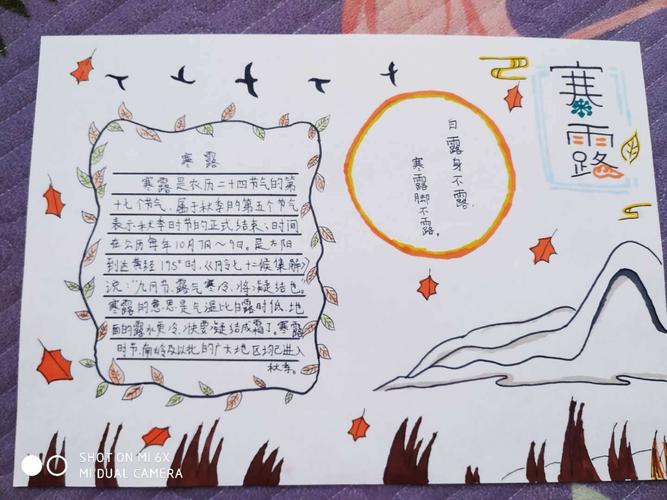 寒露
寒露
寒露是农历二十四节气的第
十七个节气，属于秋季的第五个节气
表示秋季时节的正式结束；时间
在公历每年10月7日～9日。是太阳
到达黄经195°时。《月令七十二候集解》
说：“九月节，露气寒冷，将凝结也。
寒露的意思是气温比白露时低，地
面的露水更冷，快要凝结成霜了。寒露
时节，南岭及以北的广大地区均已进入
秋季。
白露身不露，
寒露脚不露。
SHOT ON MI 6X
MI DUAL CAMERA